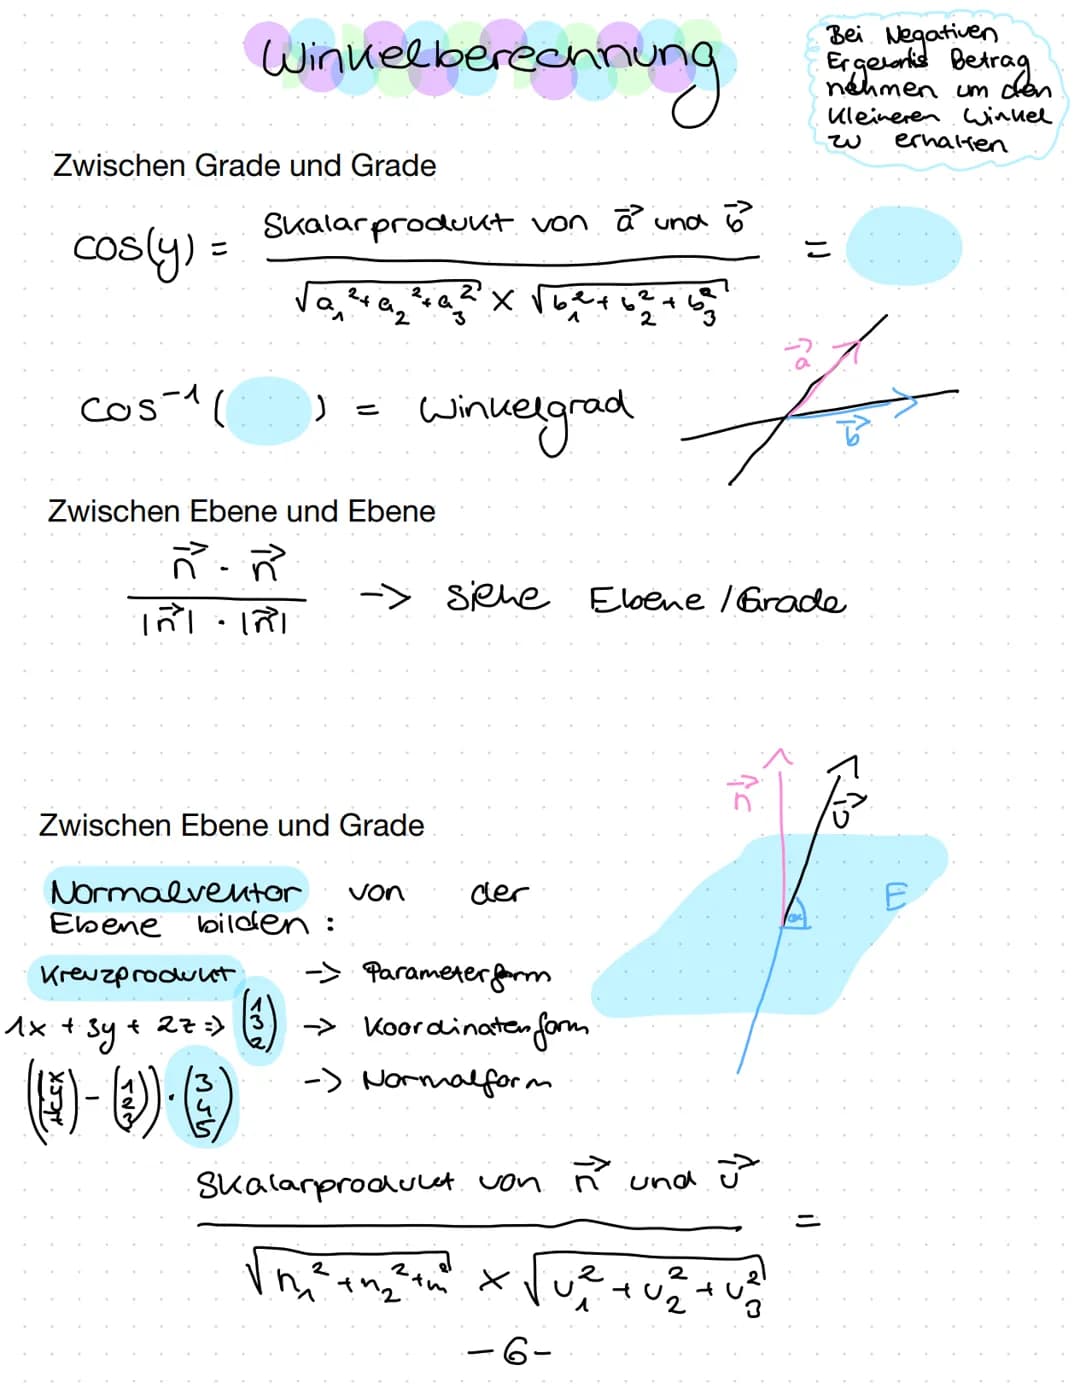 Winkelberechnung
Bei Negativen
Ergebnis Betrag
nehmen um den
kleineren Winkel
zu erhalten
Zwischen Grade und Grade
cos(y) = Skalarprodukt von a⃗ und b⃗ =
√a₁²+a₂²+a₃² × √b₁²+b₂²+b₃²
cos⁻¹( ) = Winkelgrad
a⃗
b⃗
Zwischen Ebene und Ebene
n⃗ · n⃗
|n⃗| · |n⃗|
-> siehe Ebene/Grade
n⃗
u⃗
Zwischen Ebene und Grade
E
α
Normalvektor von der
Ebene bilden:
Kreuzprodukt -> Parameterform
1x + 3y + 2z => (1 3 2) -> Koordinatenform
(( ) - (1 2 3)) · (3 4 5) -> Normalform
Skalarprodukt von n⃗ und u⃗ =
√n₁²+n₂²+n² × √u₁²+u₂²+u₃²
-6-